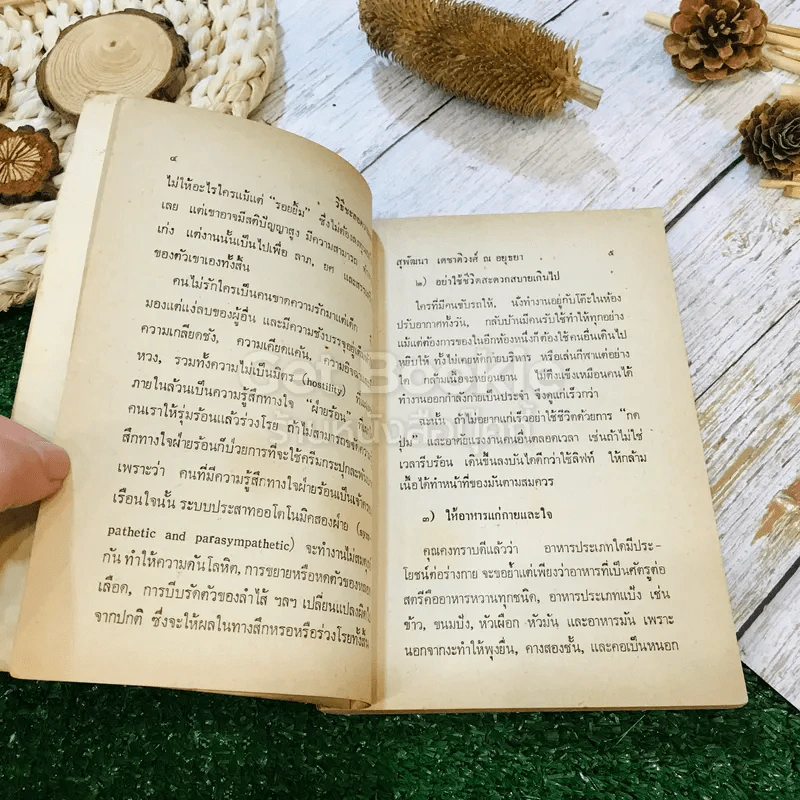 ๔
วิธีชะลอความ
ไม่ให้อะไรใครแม้แต่ “รอยยิ้ม” ซึ่งไม่ต้องลงทุน
เลย แต่เขาอาจมีสติปัญญาสูง มีความสามารถ
เก่ง แต่งานนั้นเป็นไปเพื่อ ลาภ, ยศ และสรรเสริญ
ของตัวเขาเองทั้งสิ้น
คนไม่รักใครเป็นคนขาดความรักมาแต่เด็ก
มองแต่แง่ลบของผู้อื่น และมีความชังบรรจุอยู่เต็ม
ความเกลียดชัง, ความเคียดแค้น, ความอิจฉา
หวง, รวมทั้งความไม่เป็นมิตร (hostility) ที่
ภายในล้วนเป็นความรู้สึกทางใจ “ฝ่ายร้อน”
คนเราให้รุ่มร้อนแล้วร่วงโรย ถ้าไม่สามารถขจัดความ
สึกทางใจฝ่ายร้อนก็ป่วยการที่จะใช้ครีมกระปุกละพัน
เพราะว่า คนที่มีความรู้สึกทางใจฝ่ายร้อนเป็นเจ้า
เรือนใจนั้น ระบบประสาทออโตโนมิคสองฝ่าย (sym-
pathetic and parasympathetic) จะทำงานไม่สมดุล
กัน ทำให้ความดันโลหิต, การขยายหรือหดตัวของหลอด
เลือด, การบีบรัดตัวของลำไส้ ฯลฯ เปลี่ยนแปลงผิดไป
จากปกติ ซึ่งจะให้ผลในทางสึกหรอหรือร่วงโรยทั้งสิ้น
สุพัฒนา เดชาติวงศ์ ณ อยุธยา ๕
๒) อย่าใช้ชีวิตสะดวกสบายเกินไป
ใครที่มีคนขับรถให้, นั่งทำงานอยู่กับโต๊ะในห้อง
ปรับอากาศทั้งวัน, กลับบ้านมีคนรับใช้ทำให้ทุกอย่าง
แม้แต่ต้องการของในอีกห้องหนึ่งก็ต้องใช้คนอื่นเดินไป
หยิบให้ ทั้งไม่เคยหัดกายบริหาร หรือเล่นกีฬาแต่อย่าง
ใด กล้ามเนื้อจะหย่อนยาน ไม่ตึงแข็งเหมือนคนได้
ทำงานออกกำลังกายเป็นประจำ จึงดูแก่เร็วกว่า
ฉะนั้น ถ้าไม่อยากแก่เร็วอย่าใช้ชีวิตด้วยการ “กด
ปุ่ม” และอาศัยแรงงานคนอื่นตลอดเวลา เช่นถ้าไม่ใช่
เวลารีบร้อน เดินขึ้นลงบันไดดีกว่าใช้ลิฟท์ ให้กล้าม
เนื้อได้ทำหน้าที่ของมันตามสมควร
๓) ให้อาหารแก่กายและใจ
คุณคงทราบดีแล้วว่า อาหารประเภทใดมีประ-
โยชน์ต่อร่างกาย จะขอย้ำแต่เพียงว่าอาหารที่เป็นศัตรูต่อ
สตรีคืออาหารหวานทุกชนิด, อาหารประเภทแป้ง เช่น
ข้าว, ขนมปัง, หัวเผือก หัวมัน และอาหารมัน เพราะ
นอกจากจะทำให้พุงยื่น, คางสองชั้น, และคอเป็นหนอก
Get Bookie
ร้านหนังสือเปิดที่